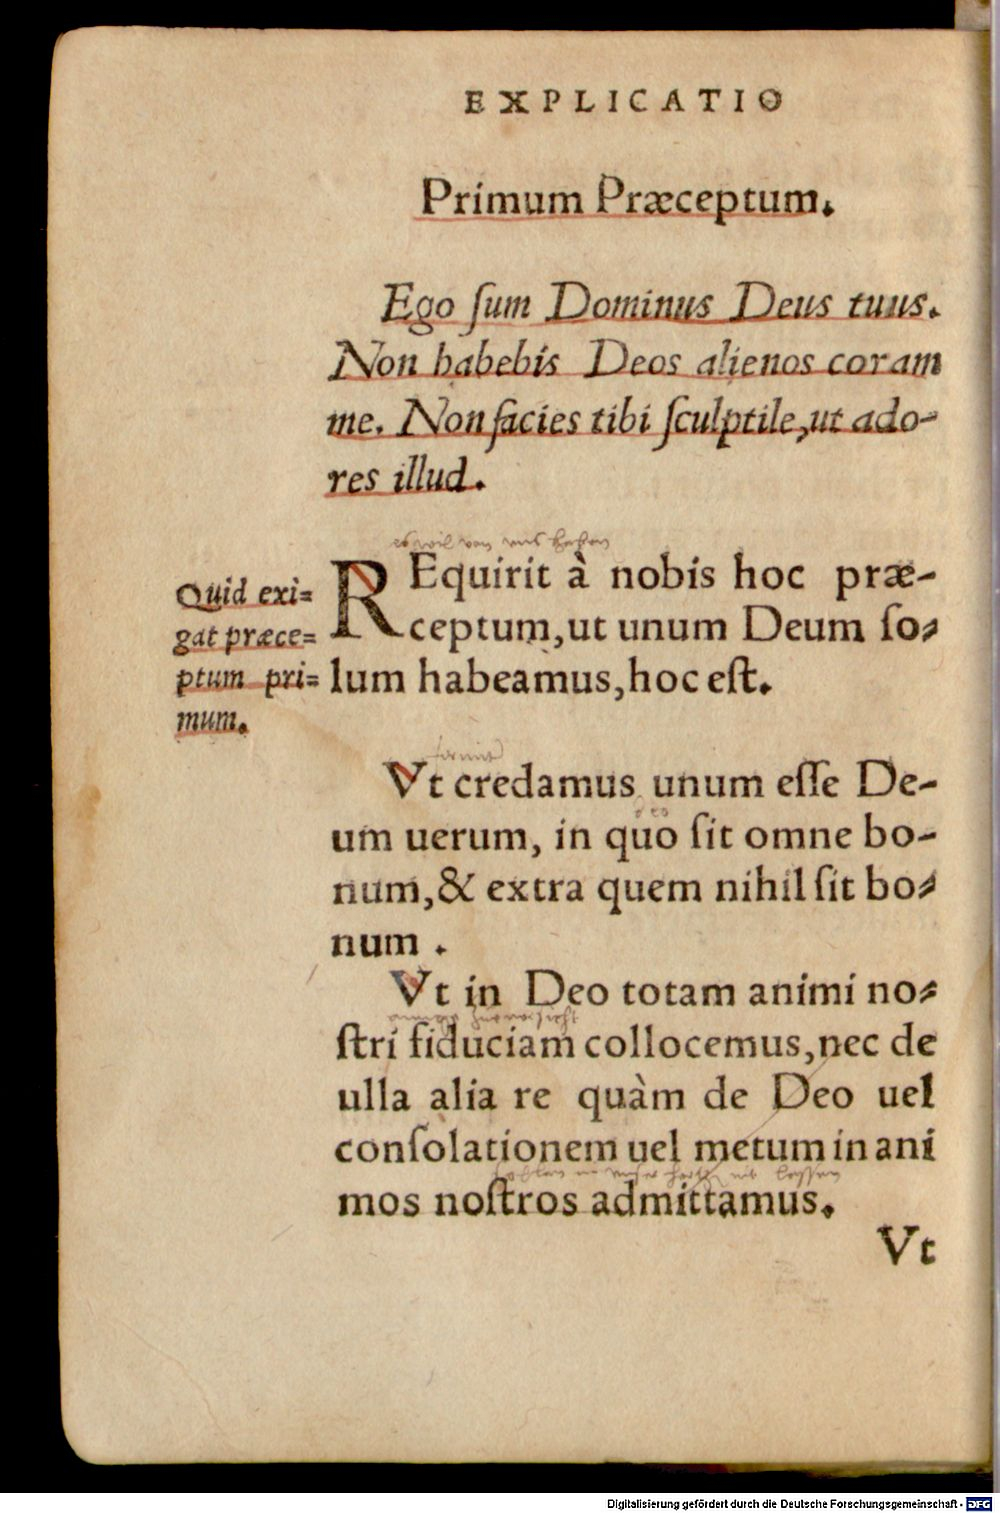 EXPLICATIO
Primum Præceptum.
Ego ſum Dominus Deus tuus.
Non habebis Deos alienos coram
me. Non facies tibi ſculptile, ut ado-
res illud.
es wil von uns haben
Quid exi=
gat præce=
ptum pri=
mum.
REquirit à nobis hoc præ-
ceptum, ut unum Deum ſo-
lum habeamus, hoc eſt.
Vt credamus unum eſſe De-
um uerum, in quo ſit omne bo-
num, & extra quem nihil ſit bo-
num.
Vt in Deo totam animi no-
ſtri fiduciam collocemus, nec de
ulla alia re quàm de Deo uel
conſolationem uel metum in ani
mos noſtros admittamus.
Vt
Digitalisierung gefördert durch die Deutsche Forschungsgemeinschaft - DFG